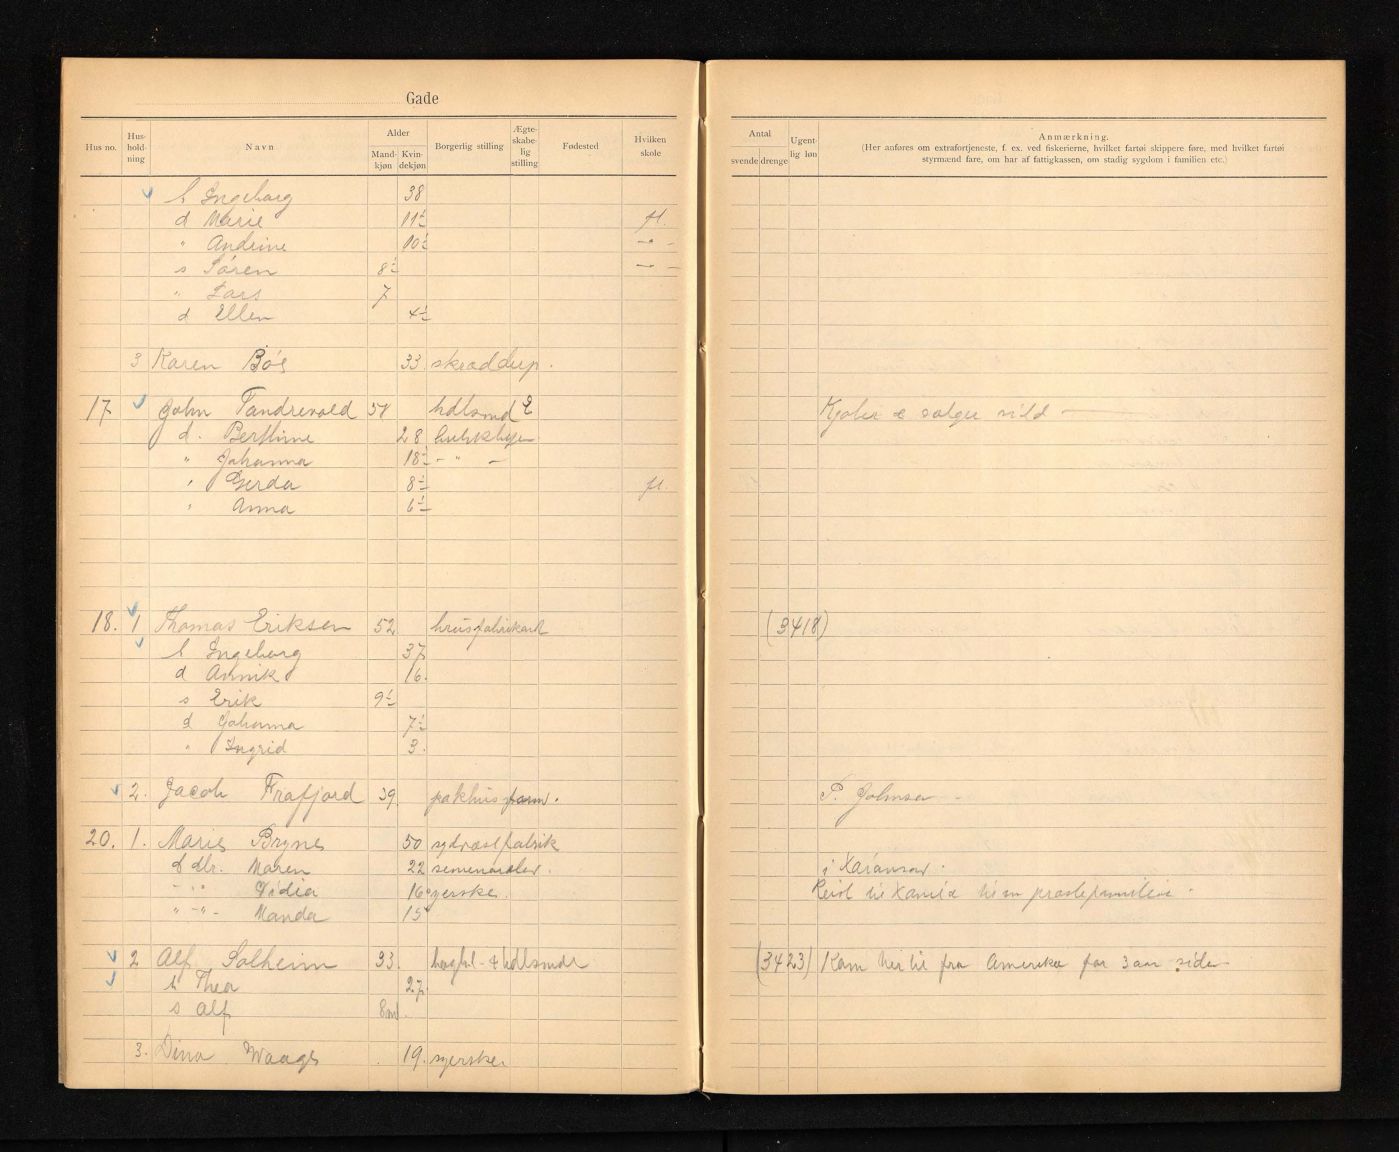 Gade
Hus no. Hus-hold-ning Navn Alder Mand-kjøn Kvin-dekjøn Borgerlig stilling Ægte-skabe-lig stilling Fødested Hvilken skole
Antal svende drenge Ugent-lig løn Anmærkning.
(Her anføres om extrafortjeneste, f. ex. ved fiskerierne, hvilket fartøi skippere føre, med hvilket fartøi
styrmænd fare, om har af fattigkassen, om stadig sygdom i familien etc.)
h Ingeborg 38
d Marie 11½ fl.
" Andrine 10½ — " —
s Søren 8½ — " —
" Lars 7
d Ellen 4½
3 Karen Bøe 33. skrædderp.
17 John Tandrevold 58 hdlsmd E Kjøber & sælger vild —
d. Berthine 28
" Johanna 18½ — " —
" Gerda 8½ fl.
" Anna 6½
18. 1 Thomas Eriksen 52 (3418)
h Ingeborg 37
d Annik 16.
s Erik 9½
d Johanna 7½
" Ingrid 3.
2. Jacob Frafjord 39. pakhusform. P. Johnsen —
20. 1. Marie Bryne 50
d dtr. Maren 22 i
" " 16 syerske. Reist til
" — " — Manda 15
2 Alf Solheim 33. & hdlsmdr (3423) Kom hertil fra Amerika for 3 aar siden
h Thea 27.
s Alf 8 md.
3. Dina Waage 19. syerske